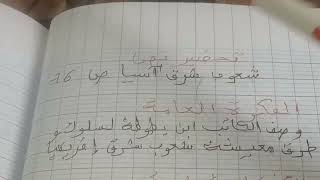 تحضير نص
شعوب شرق آسيا ص 16
الفكرة العامة
وصف الكاتب ابن بطوطة لسلوك و
طرق معيشة شعوب شرق إفريقيا